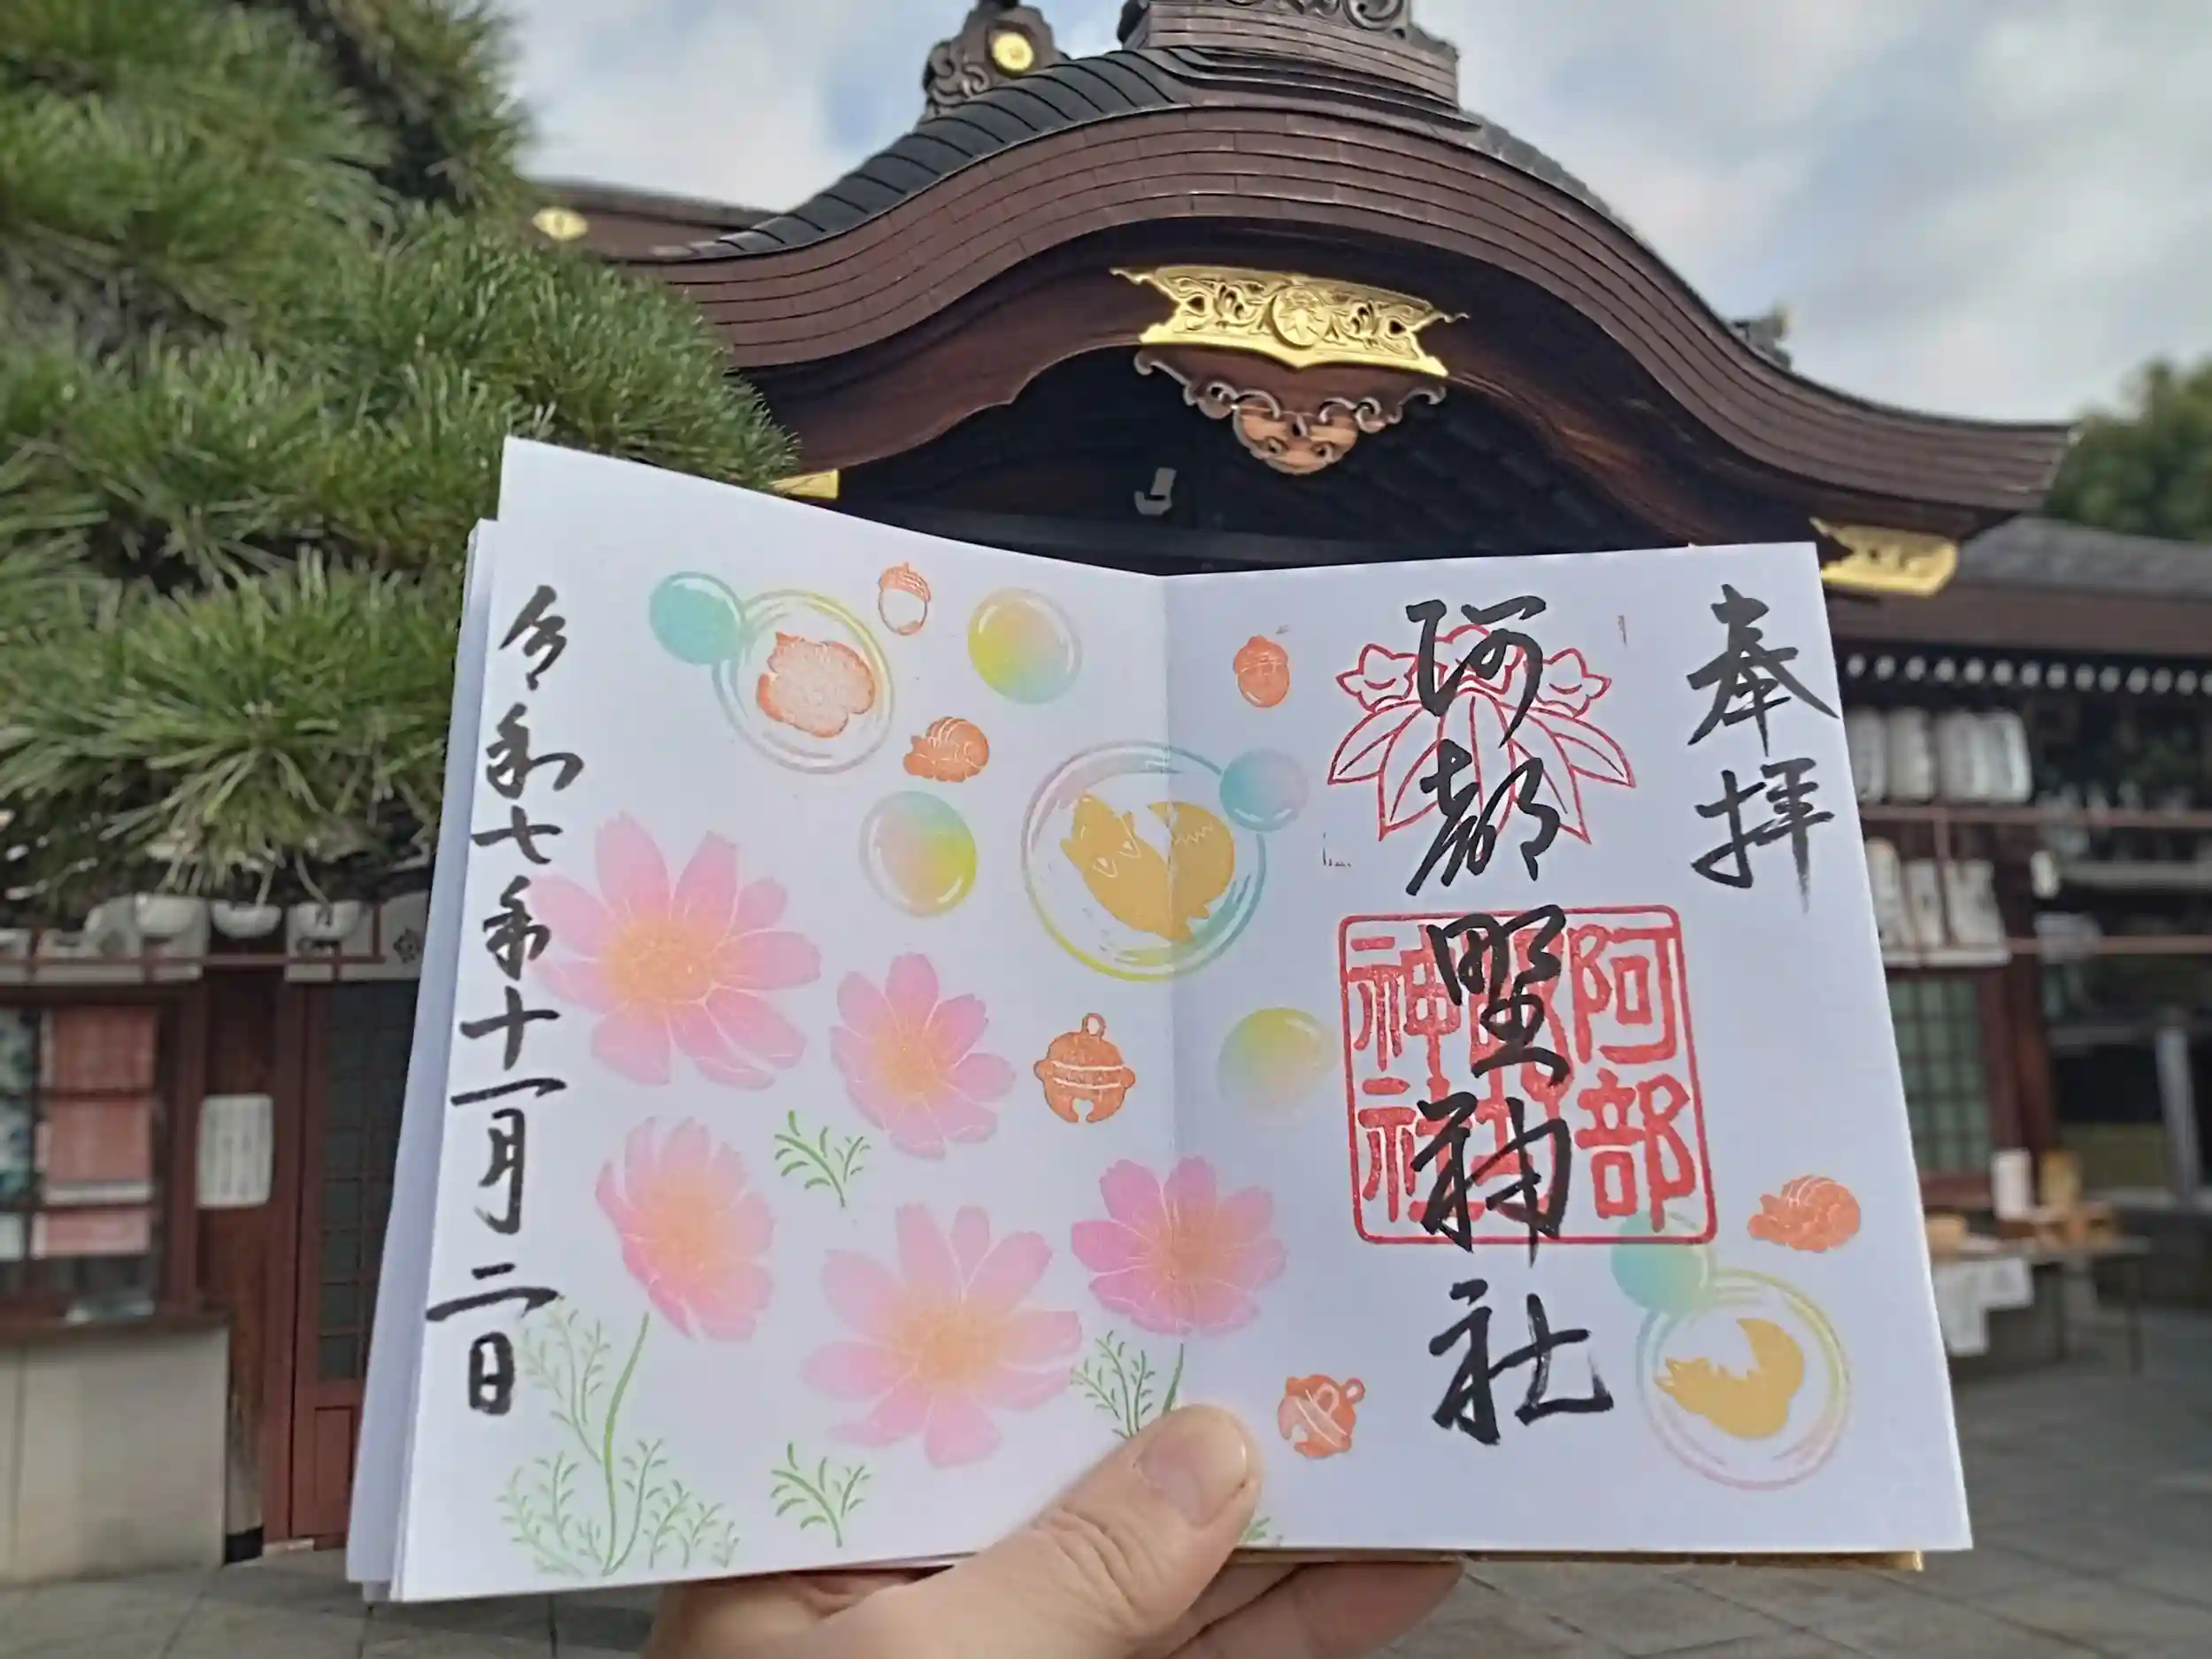 奉拝
阿部野神社
阿部野神社
令和七年十一月二日